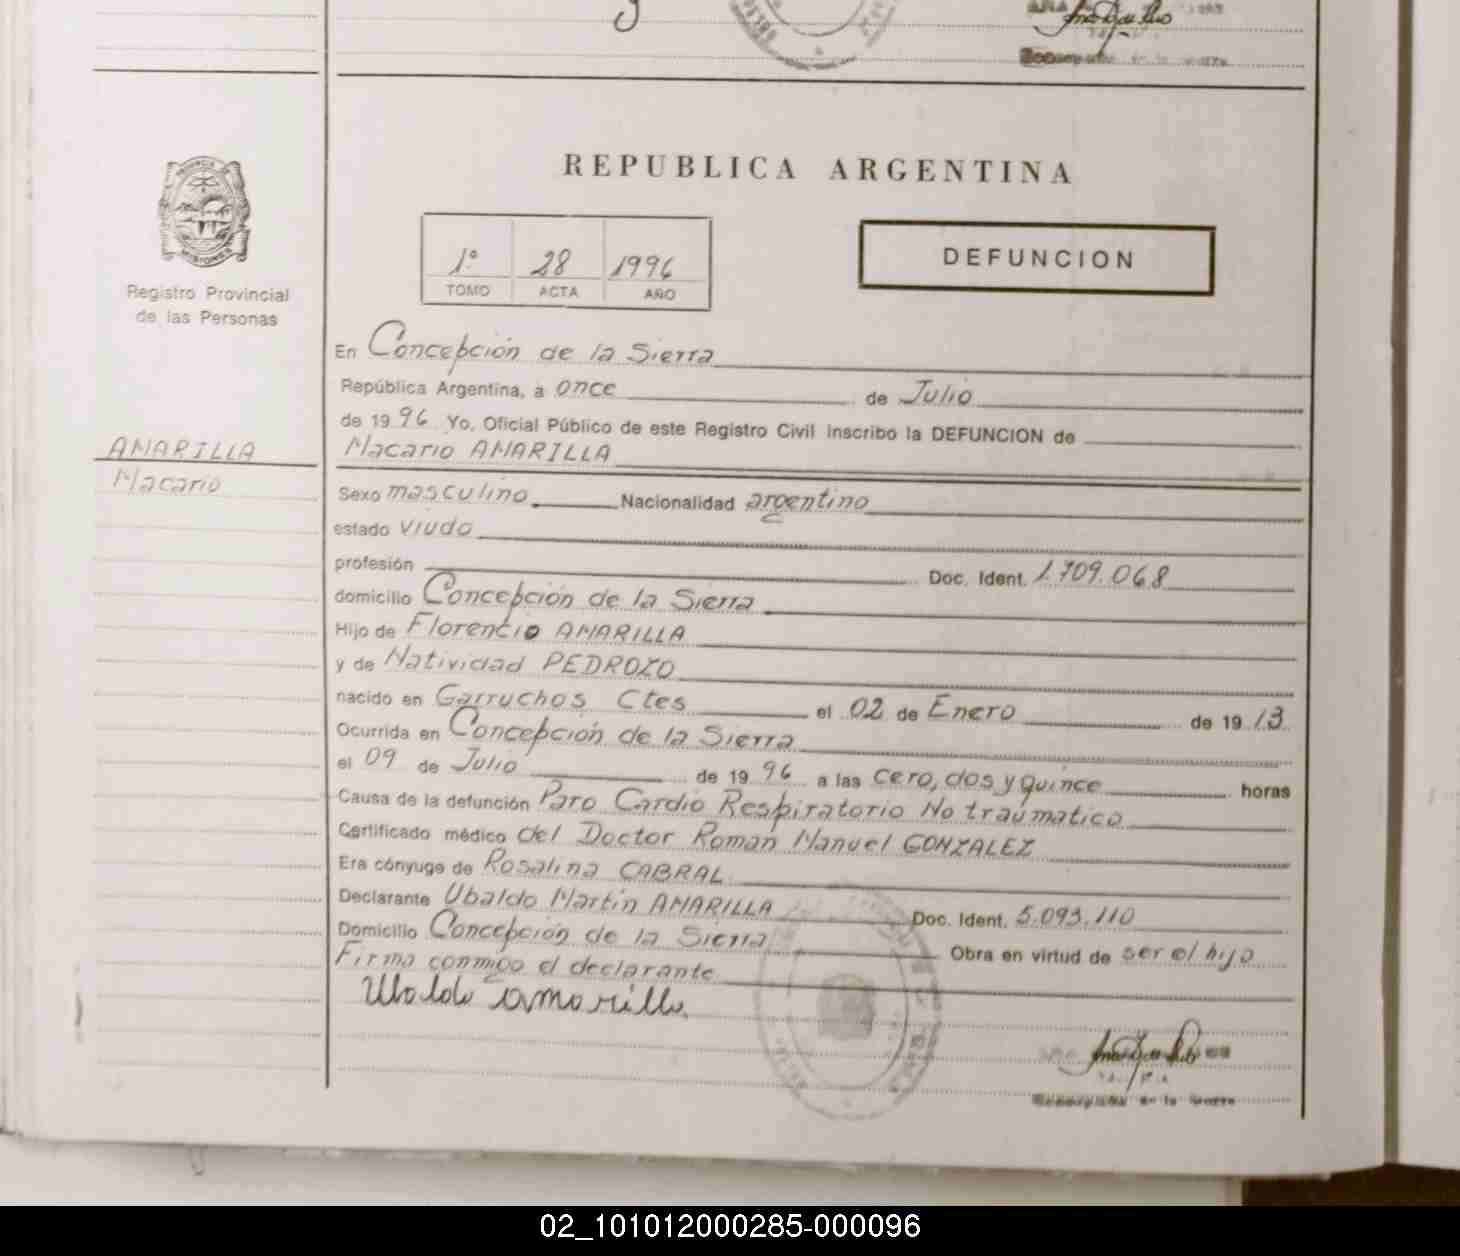 REPUBLICA ARGENTINA
PROVINCIA
MISIONES
Registro Provincial
de las Personas
1º 28 1996
TOMO ACTA AÑO
DEFUNCION
AMARILLA
Macario
En Concepción de la Sierra
República Argentina, a once de Julio
de 1996 Yo, Oficial Público de este Registro Civil inscribo la DEFUNCION de
Macario AMARILLA
Sexo masculino Nacionalidad argentino
estado viudo
profesión Doc. Ident. 1.709.068
domicilio Concepción de la Sierra
Hijo de Florencio AMARILLA
y de Natividad PEDROZO
nacido en Garruchos Ctes el 02 de Enero de 1913
Ocurrida en Concepción de la Sierra
el 09 de Julio de 1996 a las cero, dos y quince horas
Causa de la defunción Paro Cardio Respiratorio No traumatico
Certificado médico del Doctor Roman Manuel GONZALEZ
Era cónyuge de Rosalina CABRAL
Declarante Ubaldo Martín AMARILLA Doc. Ident. 5.093.110
Domicilio Concepción de la Sierra Obra en virtud de ser el hijo
Firma conmigo el declarante
Ubaldo amarilla
de la Sierra
02_101012000285-000096